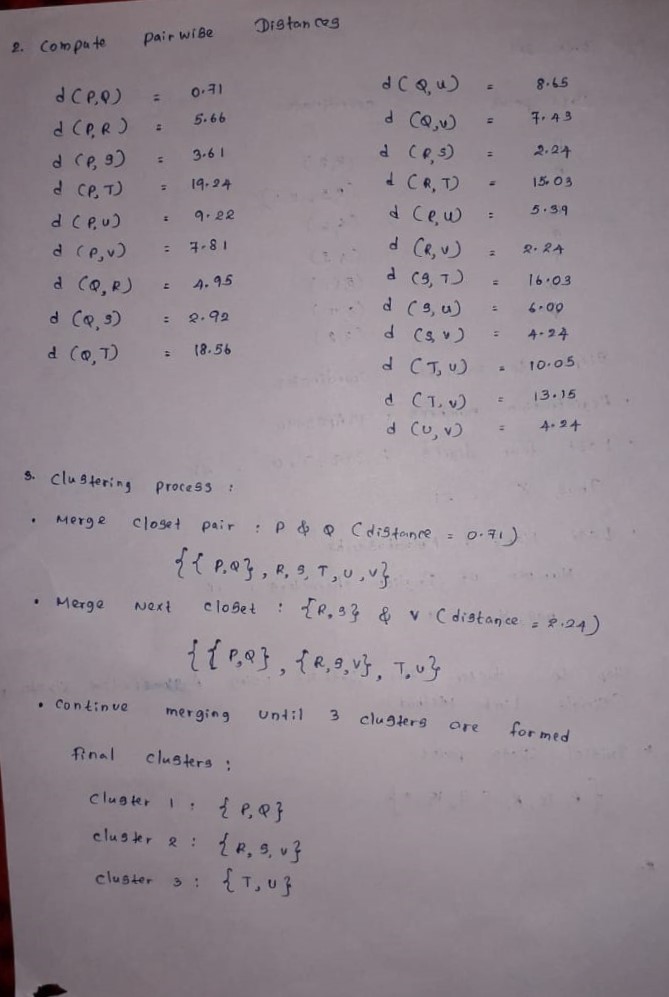 2. Compute pairwise Distances
d(P,Q) = 0.71
d(P,R) = 5.66
d(P,S) = 3.61
d(P,T) = 19.24
d(P,U) = 9.22
d(P,V) = 7.81
d(Q,R) = 4.95
d(Q,S) = 2.92
d(Q,T) = 18.56
d(Q,U) = 8.65
d(Q,V) = 7.43
d(R,S) = 2.24
d(R,T) = 15.03
d(R,U) = 5.39
d(R,V) = 2.24
d(S,T) = 16.03
d(S,U) = 6.00
d(S,V) = 4.24
d(T,U) = 10.05
d(T,V) = 13.15
d(U,V) = 4.24
3. Clustering process :
• Merge closet pair : P & Q (distance = 0.71)
{{P,Q}, R, S, T, U, V}
• Merge Next closet : {R,S} & V (distance = 2.24)
{{P,Q}, {R,S,V}, T,U}
• Continue merging until 3 clusters are formed
Final clusters :
Cluster 1 : {P,Q}
cluster 2 : {R,S,V}
cluster 3 : {T,U}